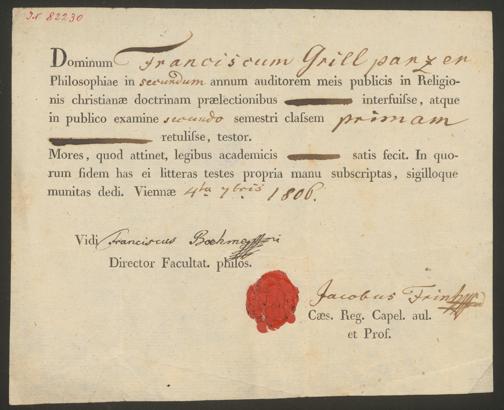 I.N. 82230
Dominum Franciscum Grillparzer
Philosophiae in secundum annum auditorem meis publicis in Religio-
nis christianæ doctrinam prælectionibus interfuiſse, atque
in publico examine secundo semestri claſsem primam
retuliſse, testor.
Mores, quod attinet, legibus academicis satis fecit. In quo-
rum fidem has ei litteras testes propria manu subscriptas, sigilloque
munitas dedi. Viennæ 4ta 7bris 1806.
Vidi Franciscus
Director Facultat. philos.
Jacobus Frint
Cæs. Reg. Capel. aul.
et Prof.